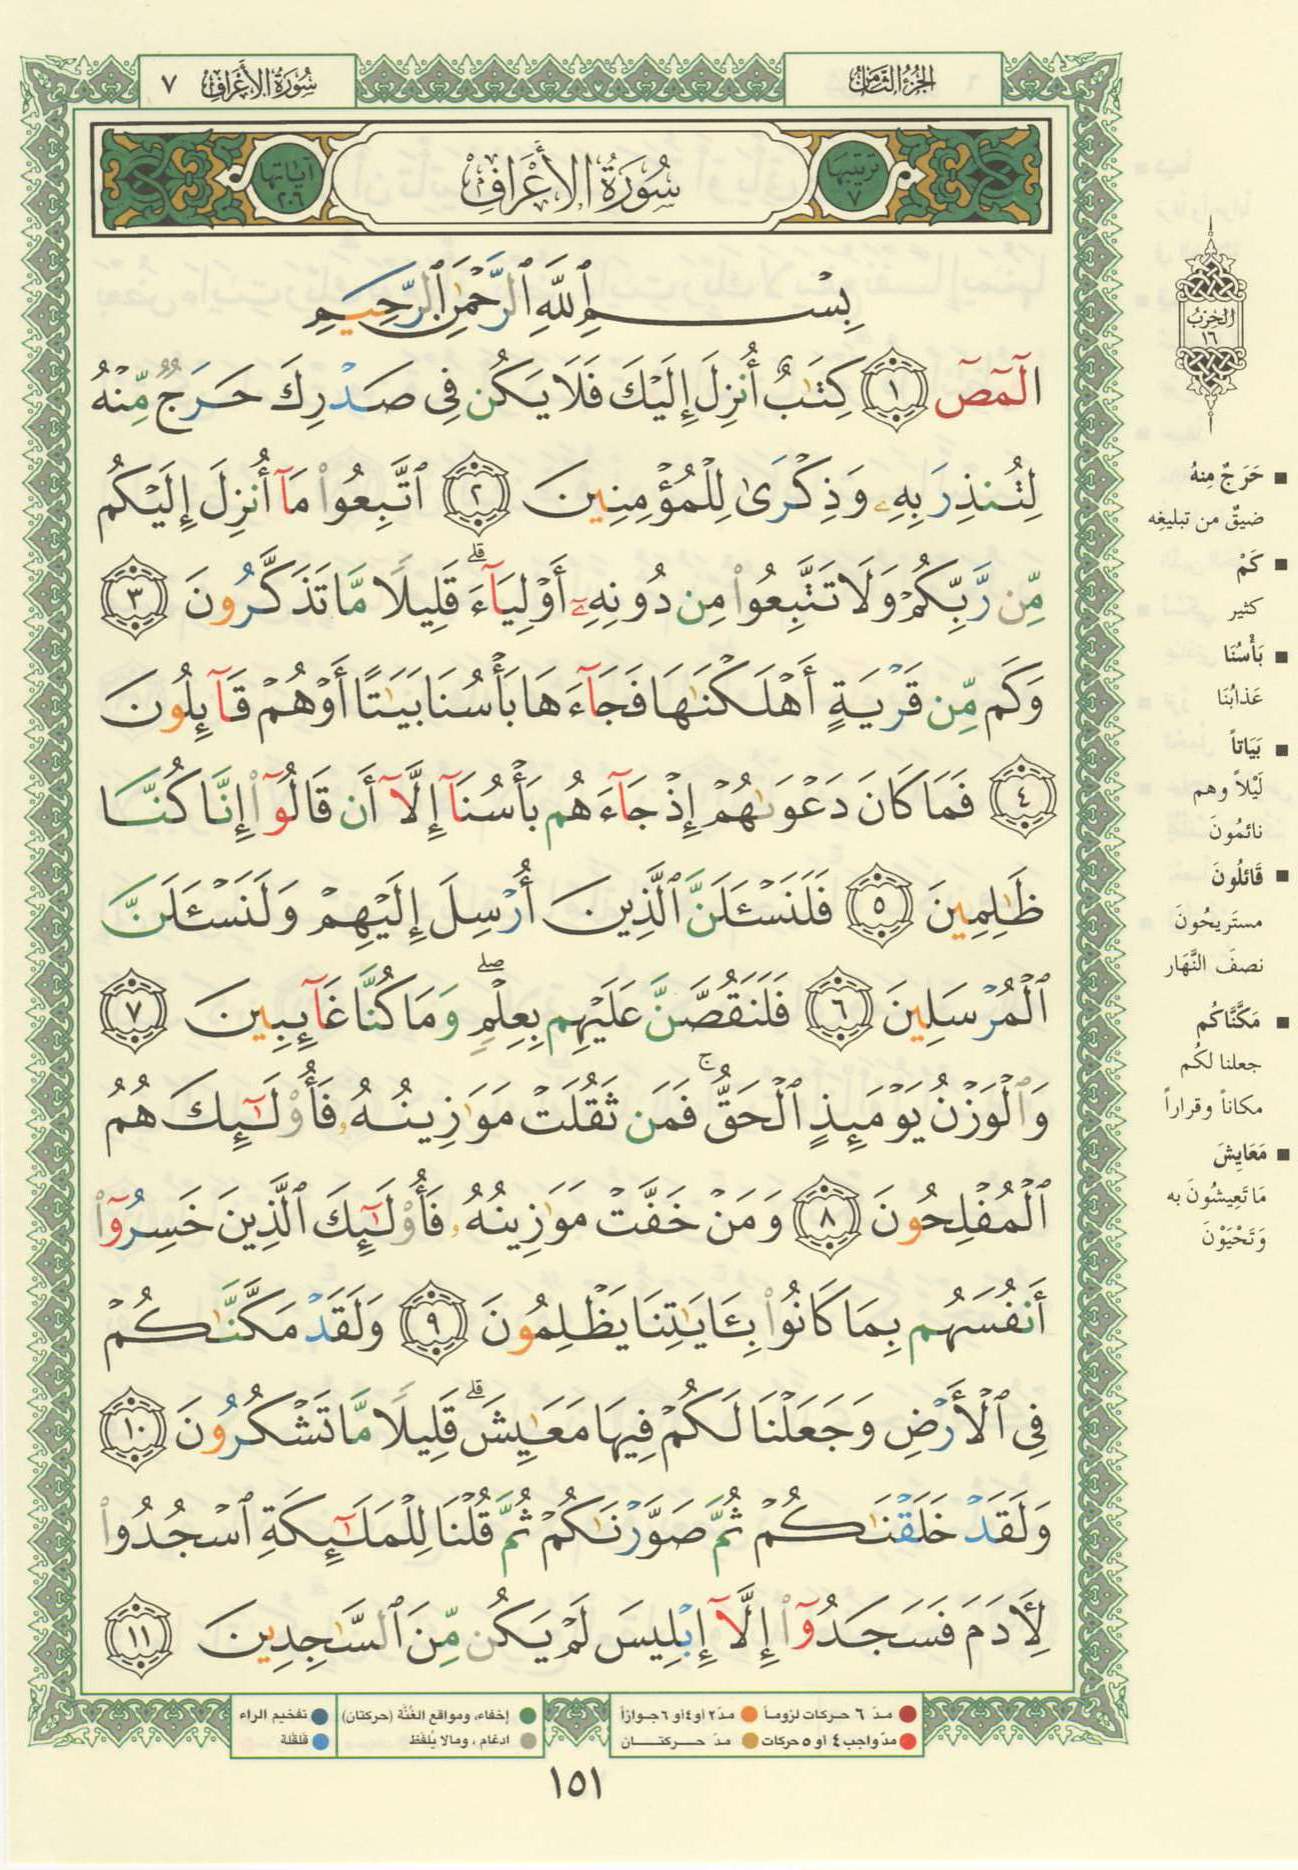 سُورَةُ الأَعْرَافِ ٧
الجُزْءُ الثَّامِنُ
ترتيبها ٧
سُورَةُ الأَعْرَافِ
آياتها ٢٠٦
بِسْمِ ٱللَّهِ ٱلرَّحْمَٰنِ ٱلرَّحِيمِ
الٓمٓصٓ ١ كِتَٰبٌ أُنزِلَ إِلَيْكَ فَلَا يَكُن فِى صَدْرِكَ حَرَجٌ مِّنْهُ
لِتُنذِرَ بِهِۦ وَذِكْرَىٰ لِلْمُؤْمِنِينَ ٢ ٱتَّبِعُوا۟ مَآ أُنزِلَ إِلَيْكُم
مِّن رَّبِّكُمْ وَلَا تَتَّبِعُوا۟ مِن دُونِهِۦٓ أَوْلِيَآءَ ۗ قَلِيلًا مَّا تَذَكَّرُونَ ٣
وَكَم مِّن قَرْيَةٍ أَهْلَكْنَٰهَا فَجَآءَهَا بَأْسُنَا بَيَٰتًا أَوْ هُمْ قَآئِلُونَ
٤ فَمَا كَانَ دَعْوَىٰهُمْ إِذْ جَآءَهُم بَأْسُنَآ إِلَّآ أَن قَالُوٓا۟ إِنَّا كُنَّا
ظَٰلِمِينَ ٥ فَلَنَسْـَٔلَنَّ ٱلَّذِينَ أُرْسِلَ إِلَيْهِمْ وَلَنَسْـَٔلَنَّ
ٱلْمُرْسَلِينَ ٦ فَلَنَقُصَّنَّ عَلَيْهِم بِعِلْمٍ ۖ وَمَا كُنَّا غَآئِبِينَ ٧
وَٱلْوَزْنُ يَوْمَئِذٍ ٱلْحَقُّ ۚ فَمَن ثَقُلَتْ مَوَٰزِينُهُۥ فَأُو۟لَٰٓئِكَ هُمُ
ٱلْمُفْلِحُونَ ٨ وَمَنْ خَفَّتْ مَوَٰزِينُهُۥ فَأُو۟لَٰٓئِكَ ٱلَّذِينَ خَسِرُوٓا۟
أَنفُسَهُم بِمَا كَانُوا۟ بِـَٔايَٰتِنَا يَظْلِمُونَ ٩ وَلَقَدْ مَكَّنَّٰكُمْ
فِى ٱلْأَرْضِ وَجَعَلْنَا لَكُمْ فِيهَا مَعَٰيِشَ ۗ قَلِيلًا مَّا تَشْكُرُونَ ١٠
وَلَقَدْ خَلَقْنَٰكُمْ ثُمَّ صَوَّرْنَٰكُمْ ثُمَّ قُلْنَا لِلْمَلَٰٓئِكَةِ ٱسْجُدُوا۟
لِـَٔادَمَ فَسَجَدُوٓا۟ إِلَّآ إِبْلِيسَ لَمْ يَكُن مِّنَ ٱلسَّٰجِدِينَ ١١
الحِزْبُ
١٦
■ حَرَجٌ مِنهُ
ضيقٌ من تبليغِه
■ كَمْ
كثير
■ بَأْسُنَا
عَذابُنَا
■ بَيَاتاً
لَيْلاً وهم
نائمُونَ
■ قَائلُونَ
مستَريحُونَ
نصفَ النَّهَار
■ مَكَّنَّاكُم
جعلنا لكُم
مكاناً وقراراً
■ مَعَايِشَ
مَا تَعِيشُونَ به
وَتَحْيَوْنَ
مدّ ٦ حركات لزوماً
مدّ ٢ او ٤ او ٦ جوازاً
إخفاء، ومواقع الغُنَّة (حركتان)
تفخيم الراء
مدّ واجب ٤ أو ٥ حركات
مدّ حركتان
ادغام، ومالا يُلفَظ
قلقلة
١٥١